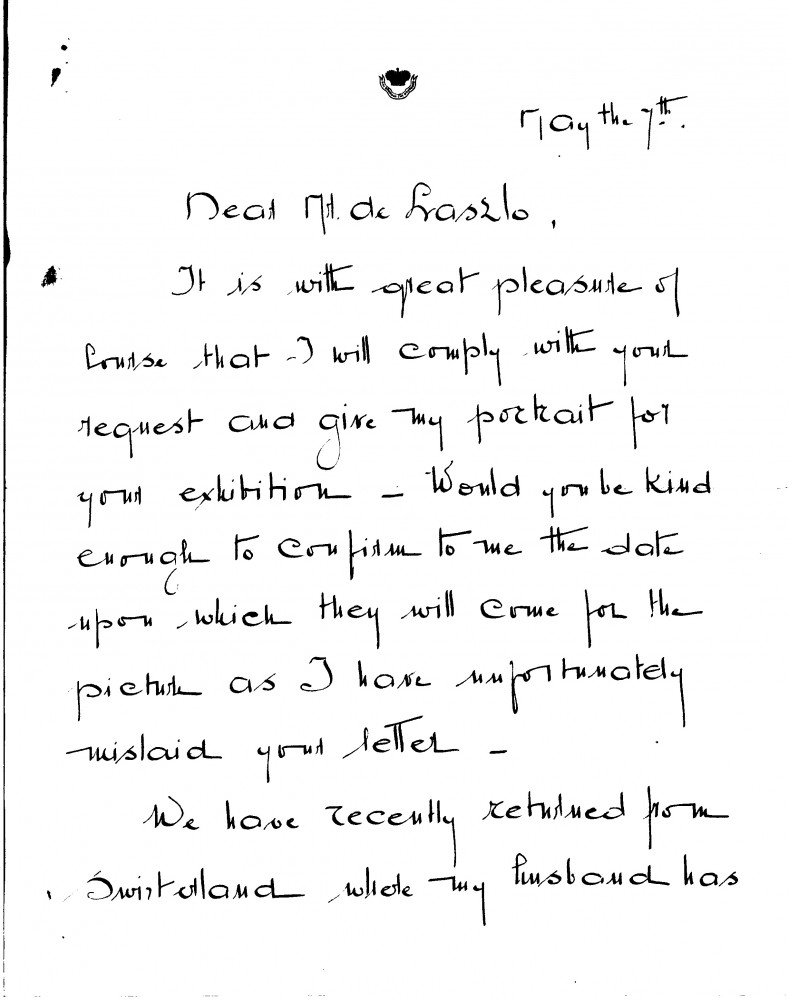 May the 7th.
Dear Mr. de Laszlo,
It is with great pleasure of
course that I will comply with your
request and give my portrait for
your exhibition – Would you be kind
enough to confirm to me the date
upon which they will come for the
picture as I have unfortunately
mislaid your letter –
We have recently returned from
Switzerland where my husband has